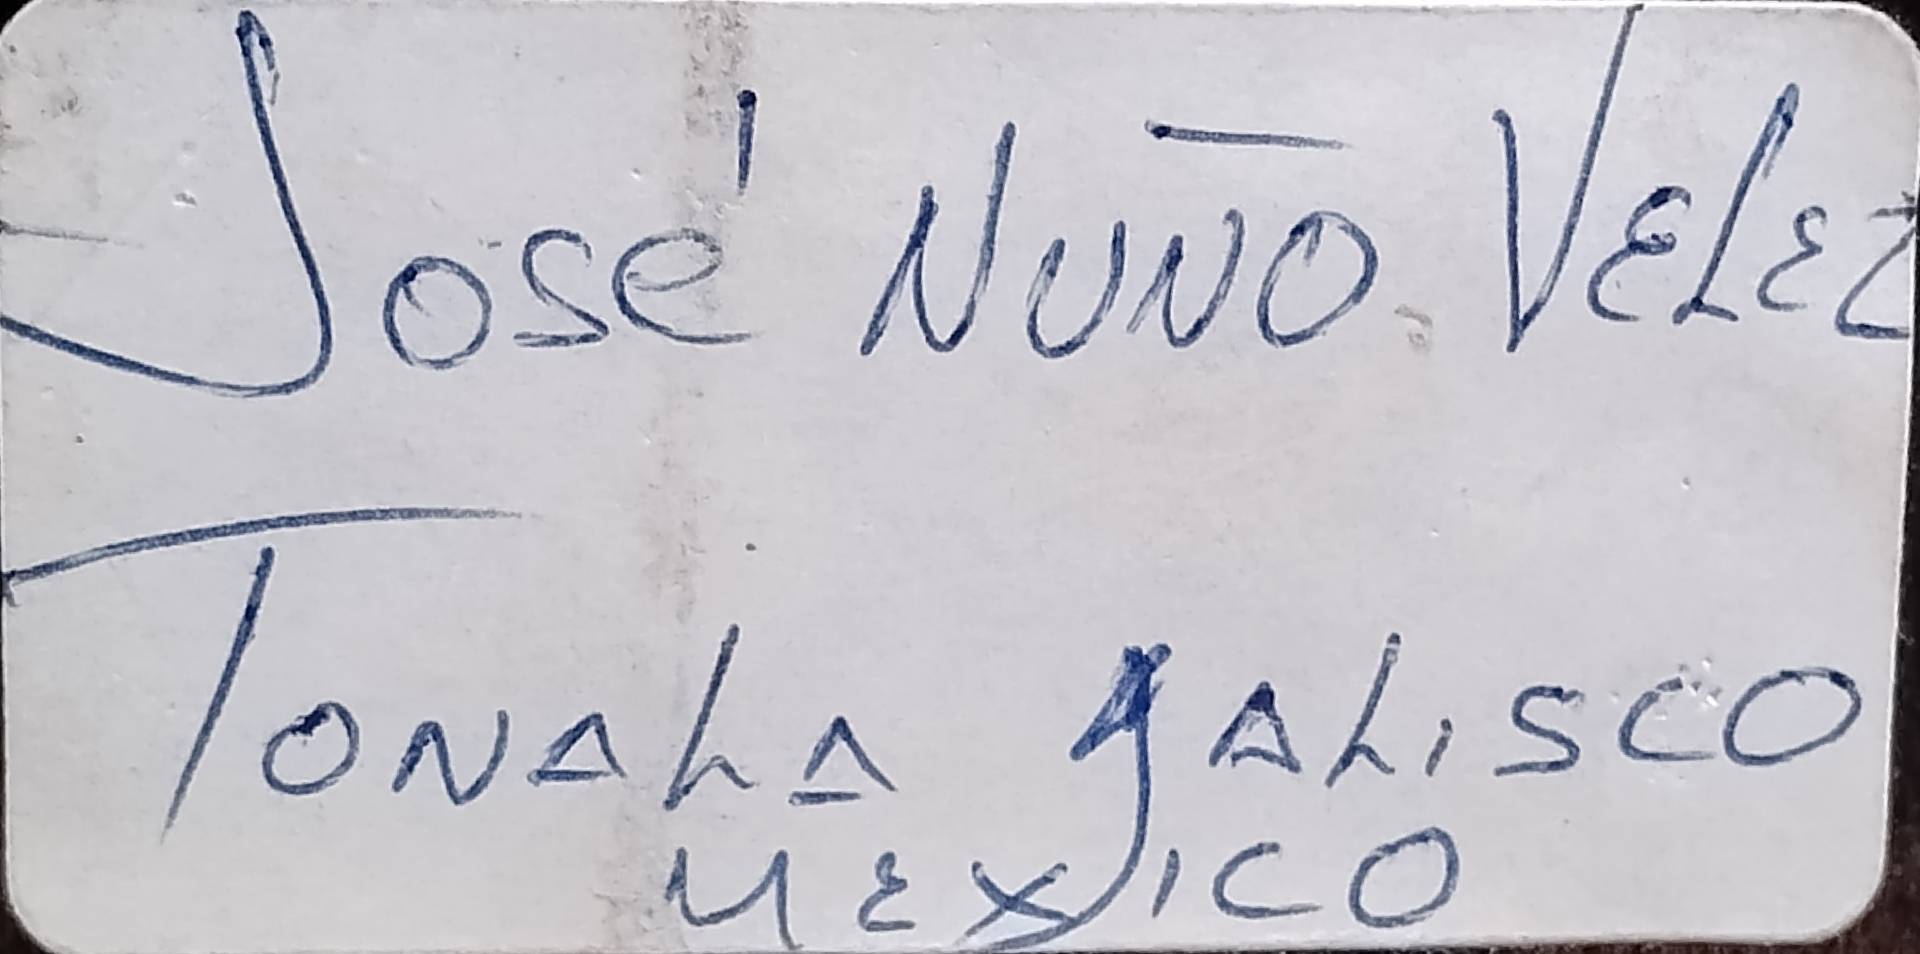 José NUÑO VELEZ
TONALA JALISCO
MEXICO